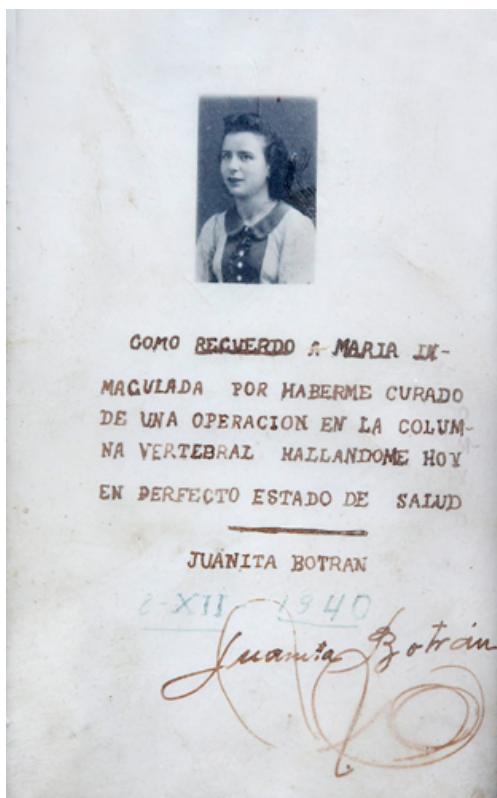 COMO RECUERDO A MARIA IN-
MACULADA POR HABERME CURADO
DE UNA OPERACION EN LA COLUM-
NA VERTEBRAL HALLANDOME HOY
EN PERFECTO ESTADO DE SALUD
JUANITA BOTRAN
-XII-1940
Juanita Botrán